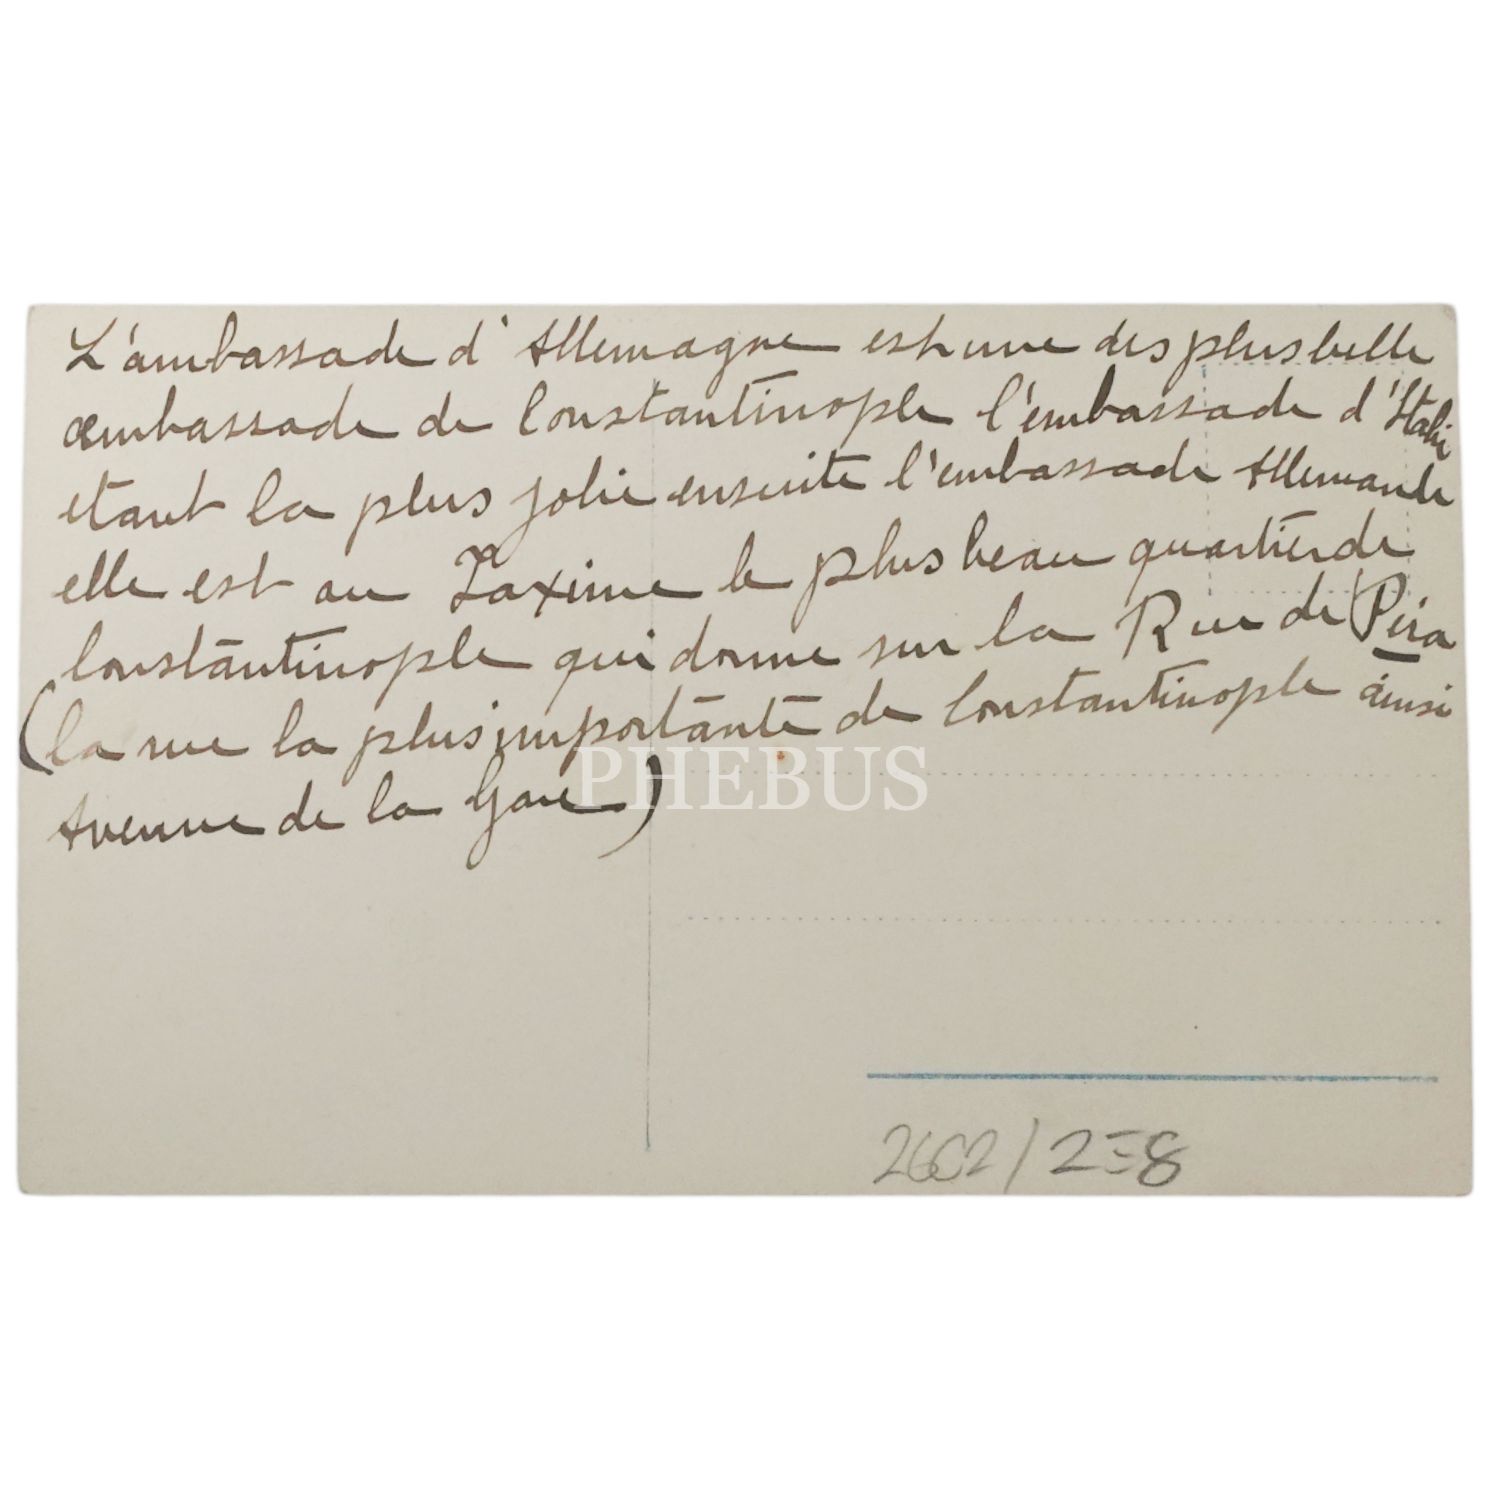 L'ambassade d'Allemagne est une des plus belle
ambassade de Constantinople l'embassade d'Italie
etant la plus jolie ensuite l'embassade Allemande
elle est au Taxime le plus beau quartier de
Constantinople qui donne sur la Rue de Péra
(la rue la plus importante de Constantinople ainsi
Avenue de la Gare)
PHEBUS
2602/258